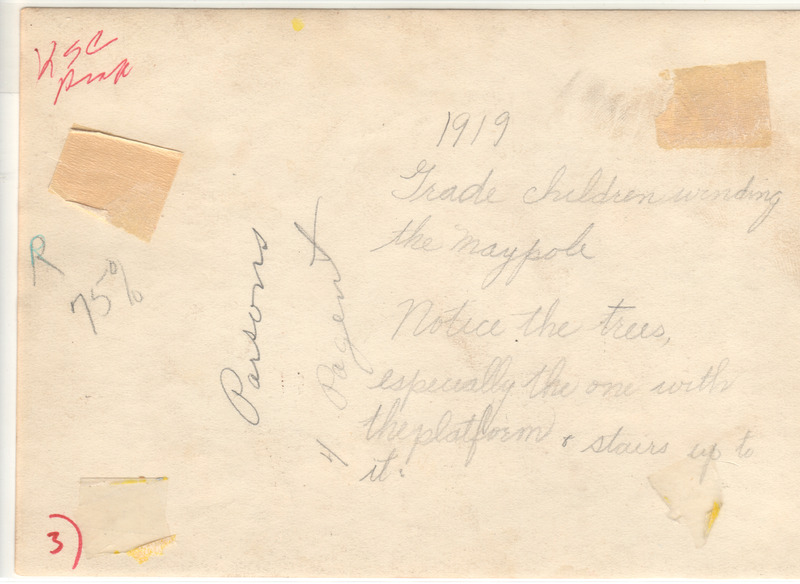 KSC
1919
Grade children winding
the maypole
Notice the trees,
especially the one with
the platform & stairs up to
it.
Parsons
4 Pagent
R
75%
3)